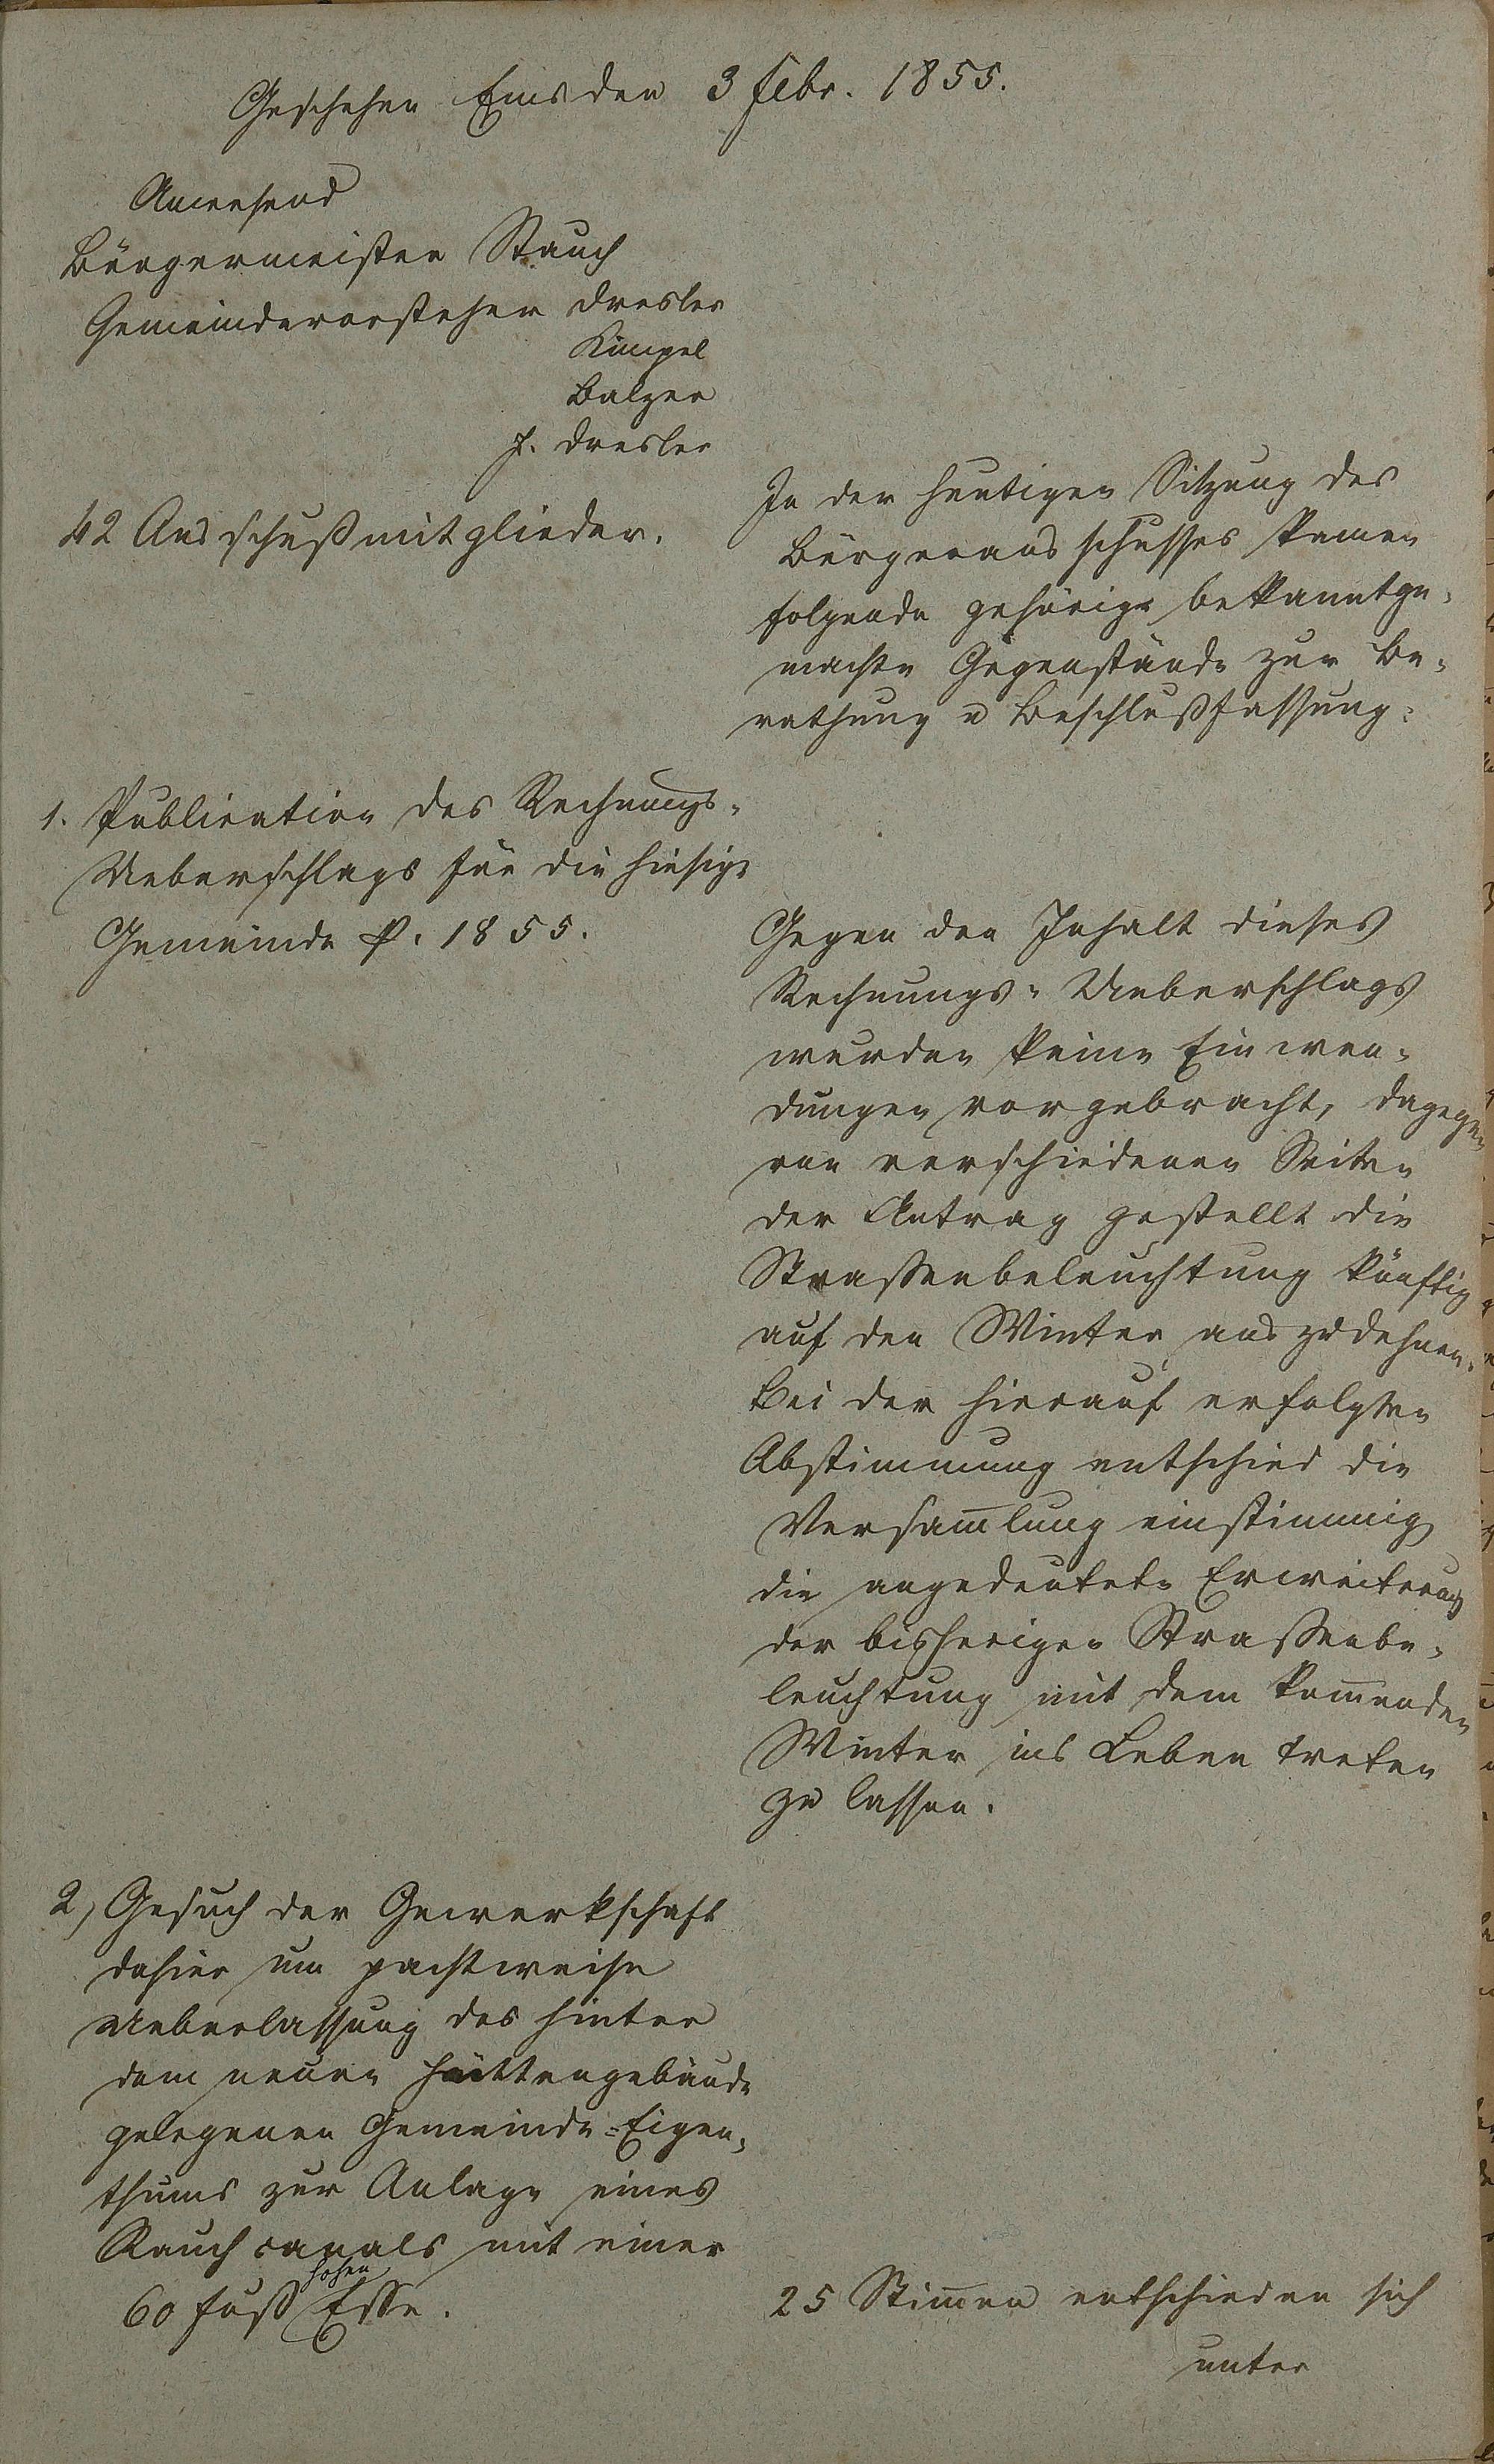 Geschehen Ems den 3 Febr. 1855.
Anwesend
Bürgermeister Stauch
Gemeindevorsteher Dresler
Kimpel
Balzer
J. Dresler
42 Ausschußmitglieder.
In der heutigen Sitzung des
Bürgerausschusses kamen
folgende gehörig bekanntge-
machte Gegenstände zur Be-
rathung u Beschlußfassung:
1. Publication des Rechnungs-
Ueberschlags für die hiesige
Gemeinde p. 1855.
Gegen den Inhalt dieses
Rechnungs-Ueberschlags
wurden keine Einwen-
dungen vorgebracht, dagegen
von verschiedenen Seiten
der Antrag gestellt die
Straßenbeleuchtung künftig
auf den Winter auszudehnen.
Bei der hierauf erfolgten
Abstimmung entschied die
Versam̅lung einstimmig
die angedeutete Erweiterung
der bisherigen Straßenbe-
leuchtung mit dem kom̅enden
Winter ins Leben treten
zu lassen.
2, Gesuch der Gewerkschaft
dahier um pachtweise
Ueberlassung des hinter
dem neuen Hüttengebäude
gelegenen Gemeinde-Eigen-
thums zur Anlage eines
Rauchcanals mit einer
60 Fuß hohen Esse.
25 Stim̅en entschieden sich
unter